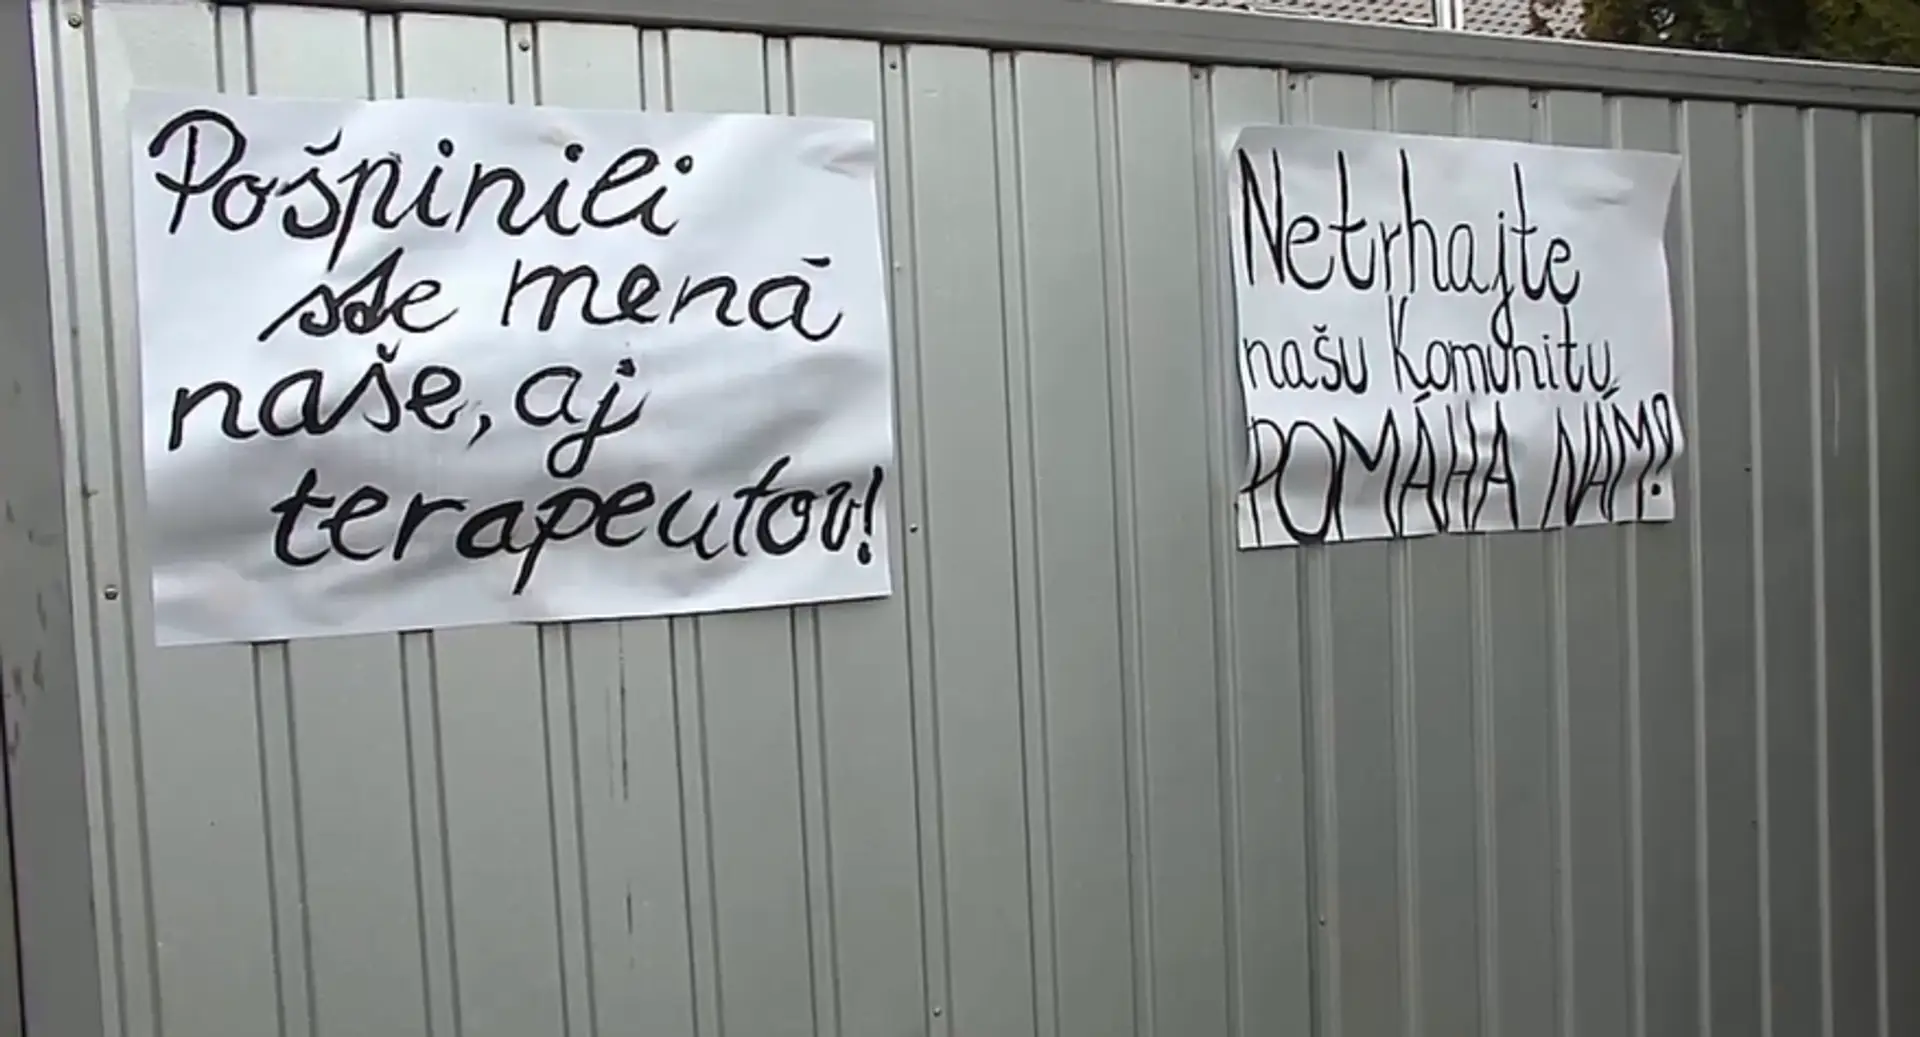 Pošpinili
ste mená
naše, aj
terapeutov!
Netrhajte
našu Komunitu,
POMÁHA NÁM!